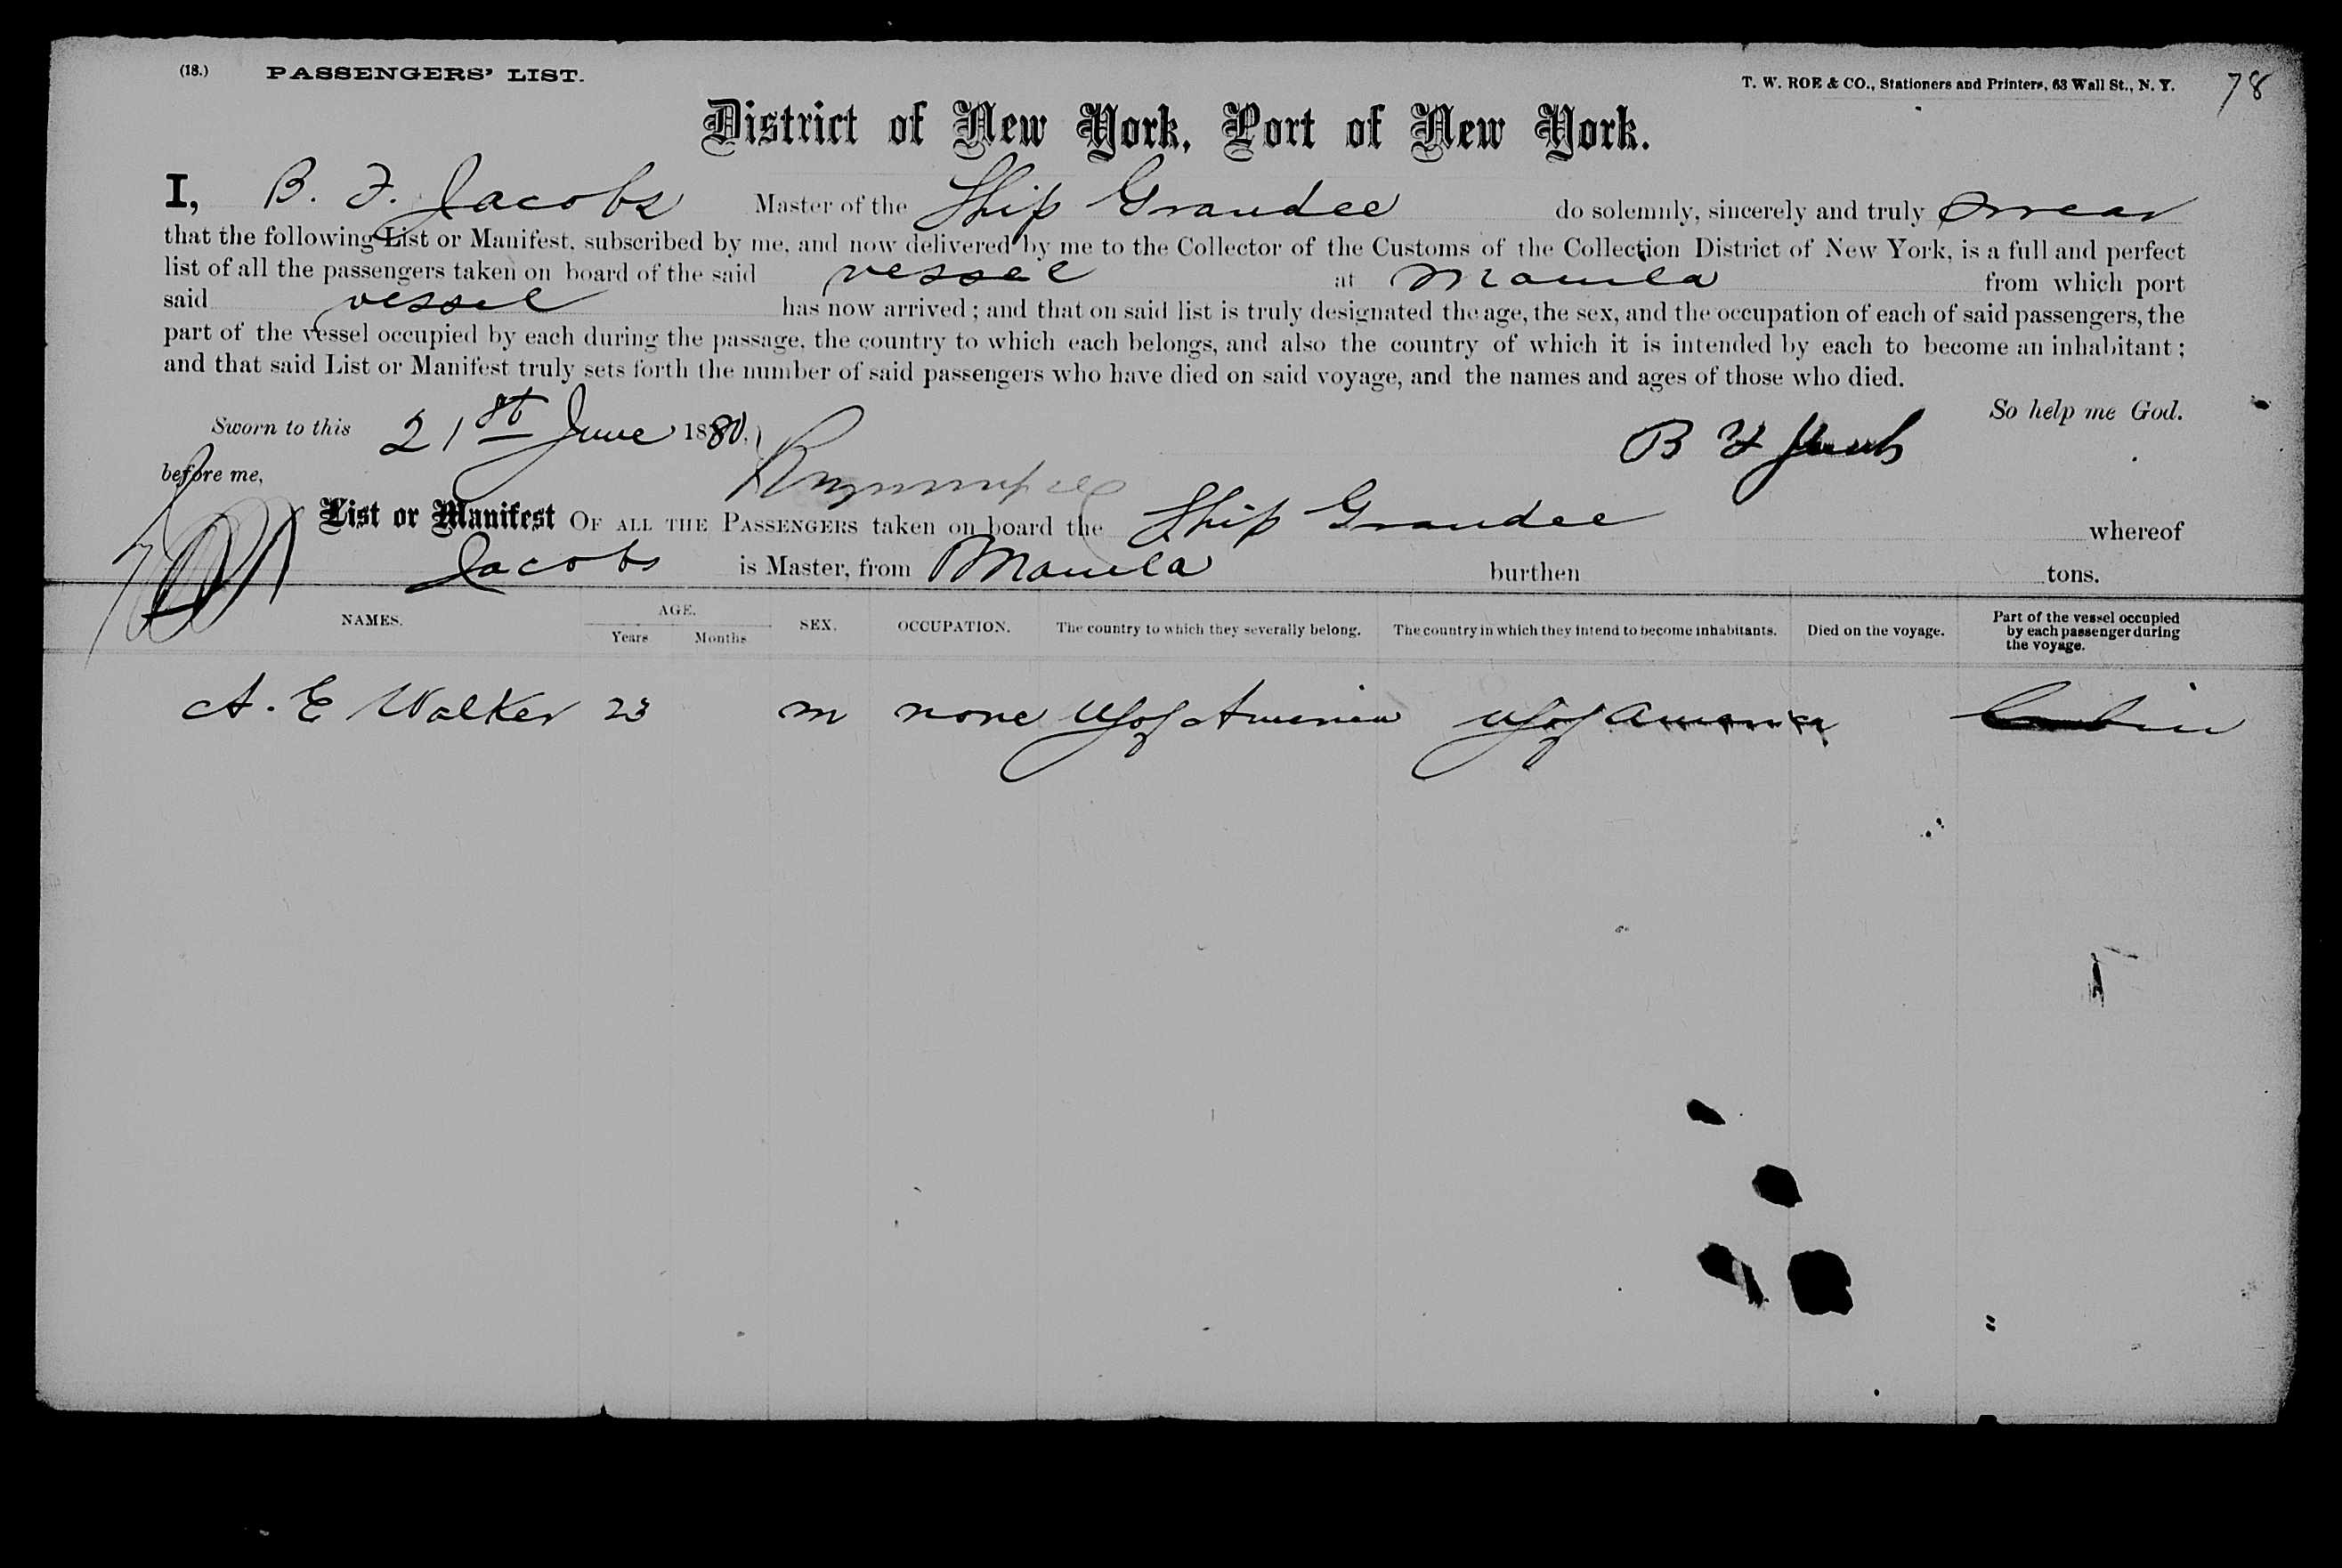 (18.) PASSENGERS' LIST. T. W. ROE & CO., Stationers and Printers, 63 Wall St., N. Y. 78
District of New York, Port of New York.
I, B. F. Jacobs Master of the Ship Grandee do solemnly, sincerely and truly swear
that the following List or Manifest, subscribed by me, and now delivered by me to the Collector of the Customs of the Collection District of New York, is a full and perfect
list of all the passengers taken on board of the said vessel at Manila from which port
said vessel has now arrived; and that on said list is truly designated the age, the sex, and the occupation of each of said passengers, the
part of the vessel occupied by each during the passage, the country to which each belongs, and also the country of which it is intended by each to become an inhabitant;
and that said List or Manifest truly sets forth the number of said passengers who have died on said voyage, and the names and ages of those who died.
So help me God.
Sworn to this 21st June 1880, B F Jacobs
before me,
List or Manifest OF ALL THE PASSENGERS taken on board the Ship Grandee whereof
Jacobs is Master, from Manila burthen tons.
NAMES. AGE. Years Months SEX. OCCUPATION. The country to which they severally belong. The country in which they intend to become inhabitants. Died on the voyage. Part of the vessel occupied by each passenger during the voyage.
A. E Walker 23 m none US of America US of America Cabin